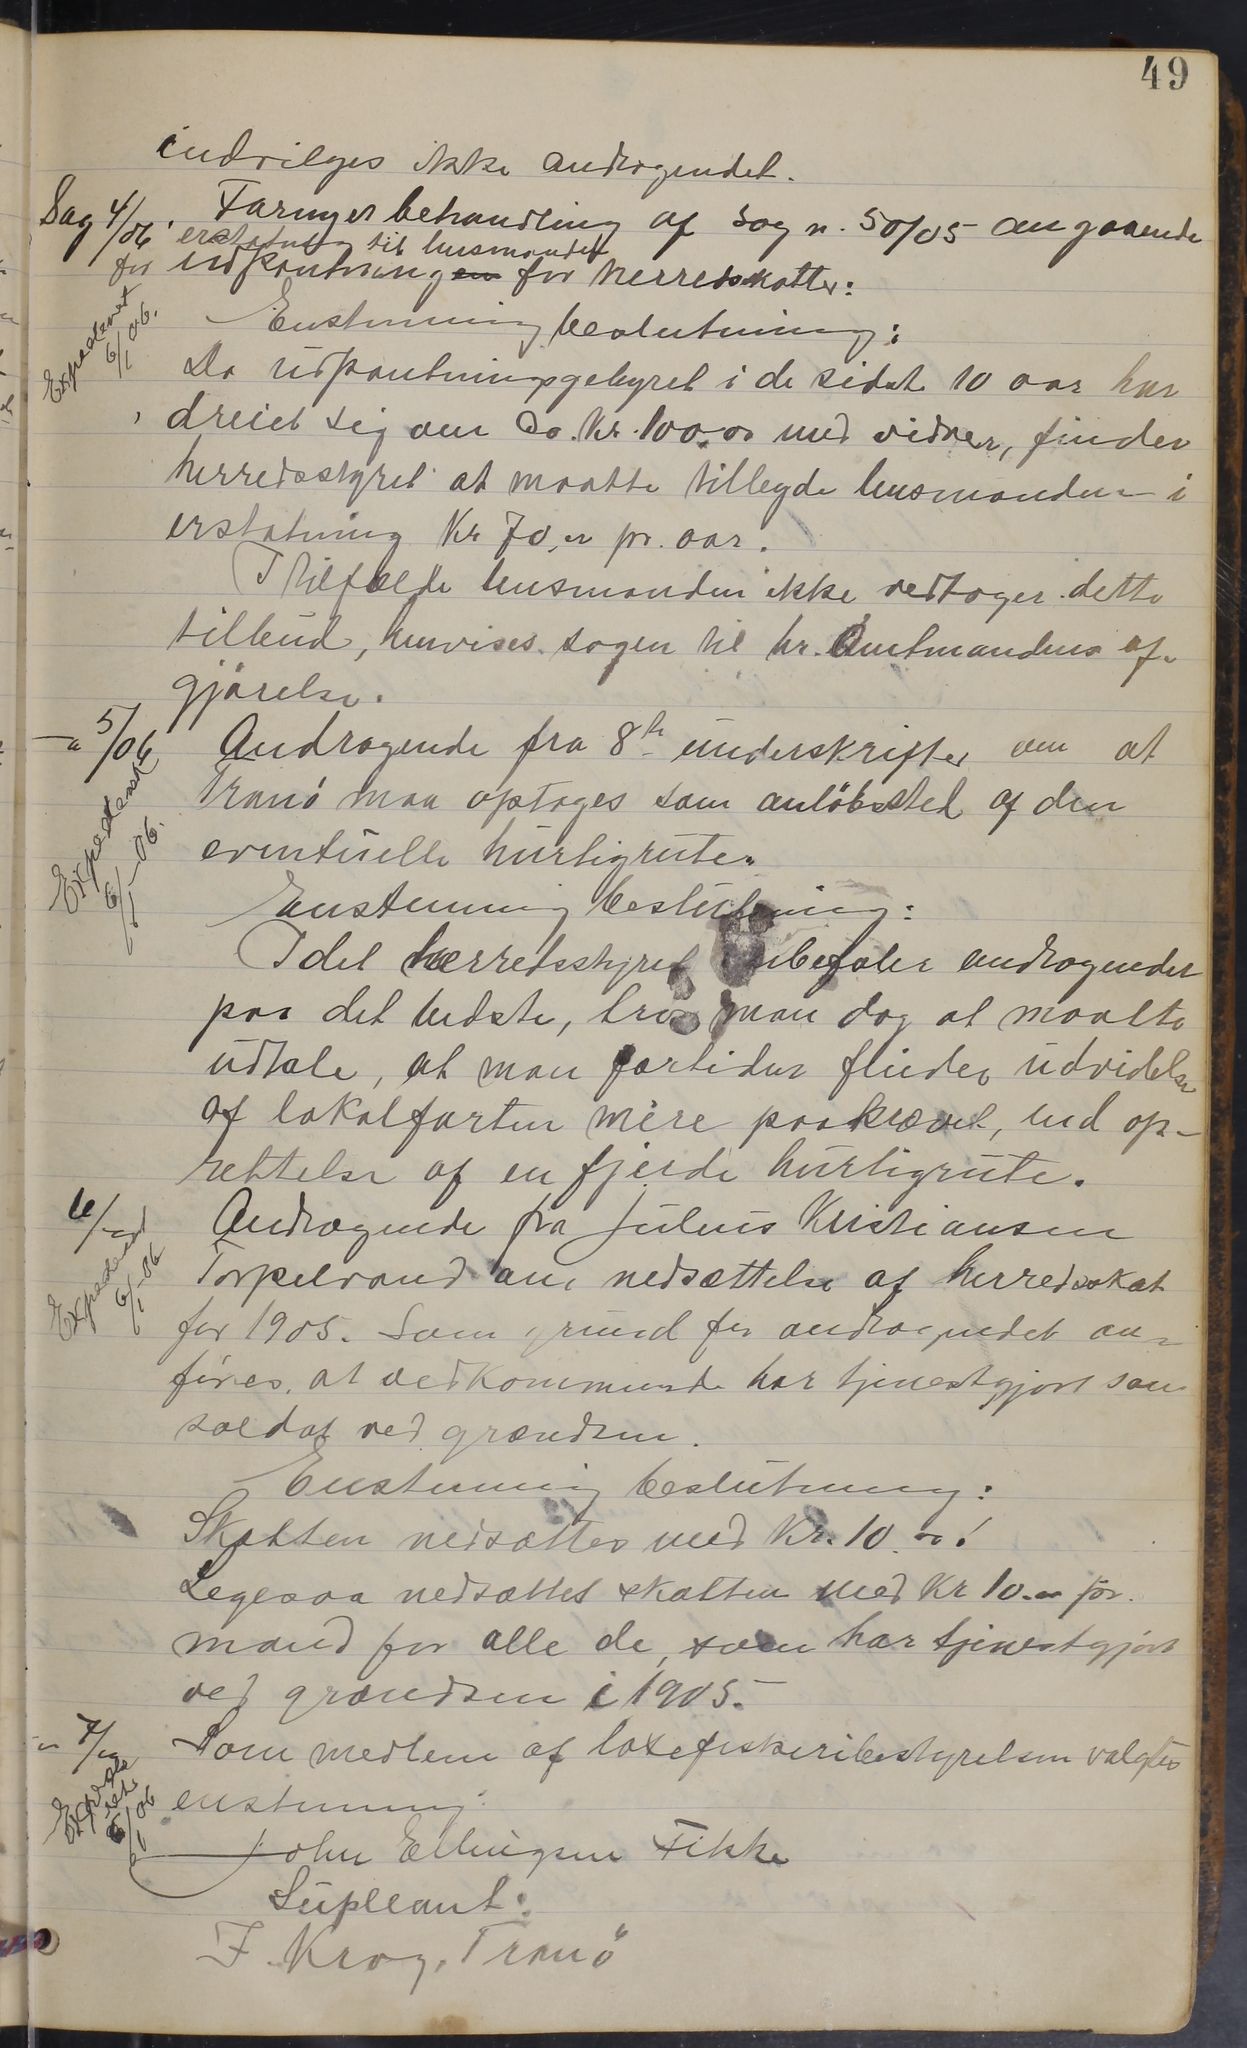 49
indvilges ikke andragendet.
Sag 4/06. Fornyet behandling af sag n. 50/05 angaaende
erstatning til lensmanden
for udpantningen for herredsskatter:
Expederet 6/1 06.
Enstemmig beslutning:
Da udpantningsgebyret i de sidste 10 aar har
dreiet sig om Ca. Kr. 100.00 med vidner, finder
herredsstyret at maatte tilbyde lensmanden i
erstatning Kr 70,00 pr. aar.
I tilfælde lensmanden ikke vedtager dette
tilbud, henvises sagen til hr. Amtmandens af-
gjørelse.
— " 5/06 Andragende fra 8te underskrifter om at
Tranö maa optages som anløbssted af den
eventuelle hurtigrute.
Expederet 6/1-06.
Enstemmig beslutning:
Idet herredsstyret anbefaler andragendet
paa det bedste, tror man dog at maatte
udtale, at man fortiden finder udvidelse
af lokalfarten mere paakrævet, end op-
rettelse af en fjerde hurtigrute.
6/06 Andragende fra Julius Kristiansen
Torpelvand om nedsættelse af herredsskat
Expederet 6/1-06
for 1905. Som grund for andragendet an-
føres, at vedkommende har tjenestgjort som
soldat ved grændsen.
Enstemmig beslutning:
Skatten nedsættes med Kr. 10.00!
Legesaa nedsættes skatten med Kr 10.00 pr.
mand for alle de, som har tjenestgjort
ved grændsen i 1905.
" 7/06 Som medlem af laxefiskeribestyrelsen valgtes
enstemmig:
Expederet 6/1 06
John Ellingsen Fikke
Supleant:
F. Krog, Tranö